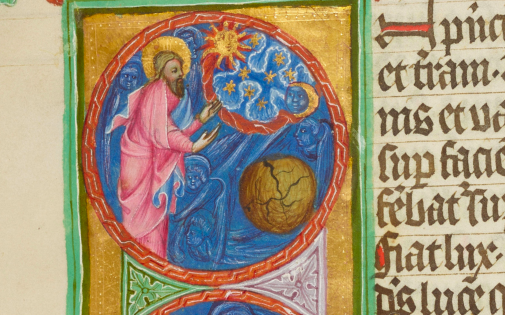 I pnci
et tram ·
nis et va
sup facie
febat su
Fiat lux ·
ds luce q